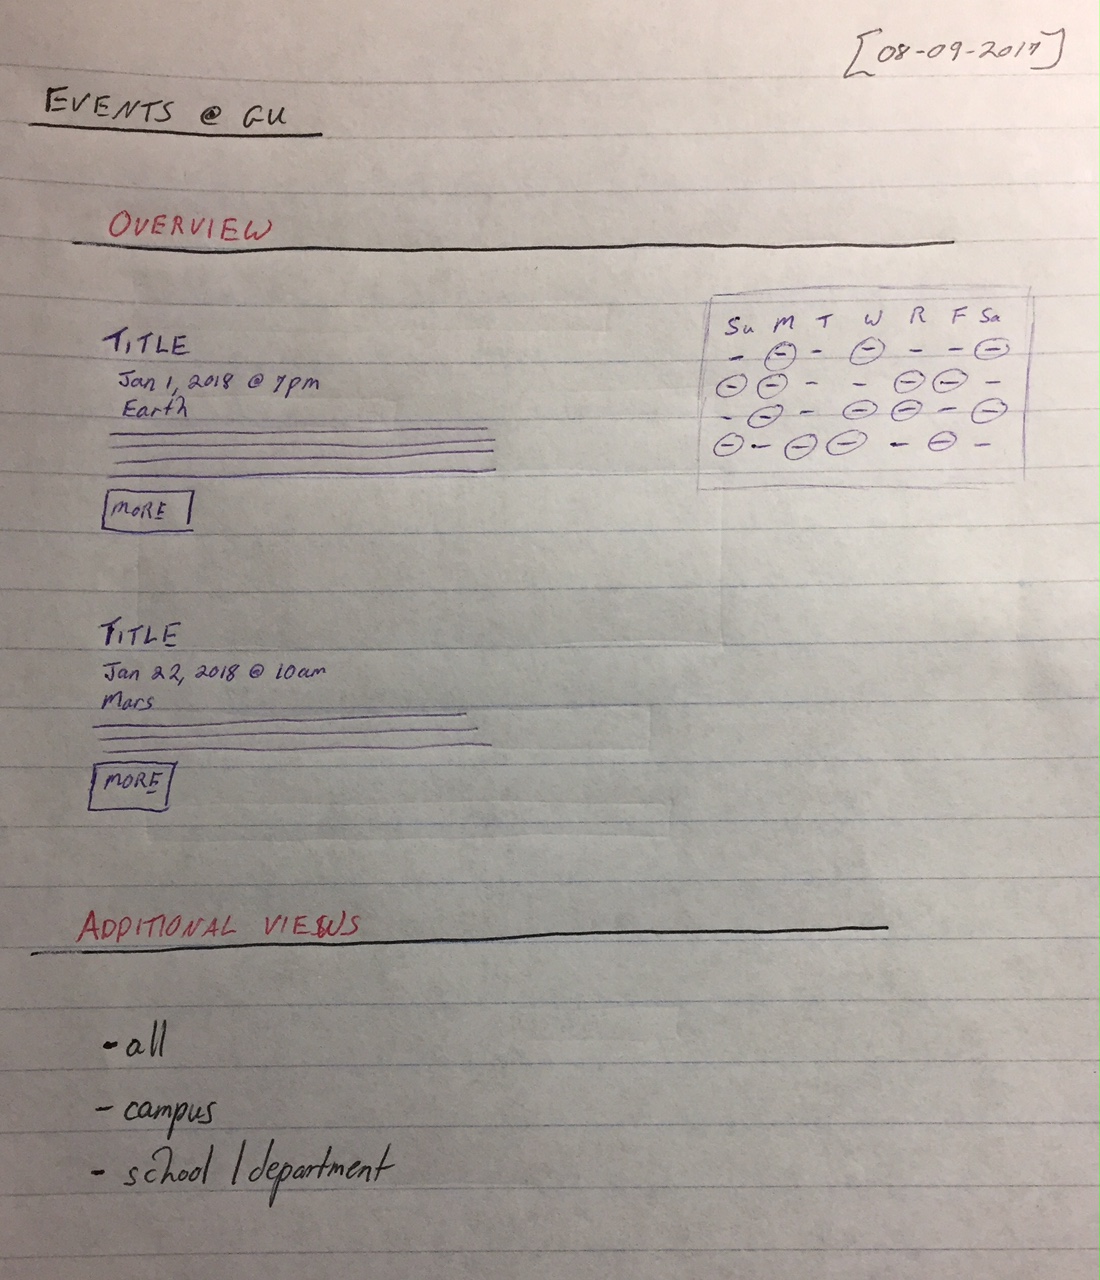 [08-09-2017]
EVENTS @ GU
OVERVIEW
TITLE
Jan 1, 2018 @ 7pm
Earth
MORE
Su M T W R F Sa
- - - - - - -
- - - - - - -
- - - - - - -
- - - - - - -
TITLE
Jan 22, 2018 @ 10am
Mars
MORE
ADDITIONAL VIEWS
- all
- campus
- school / department